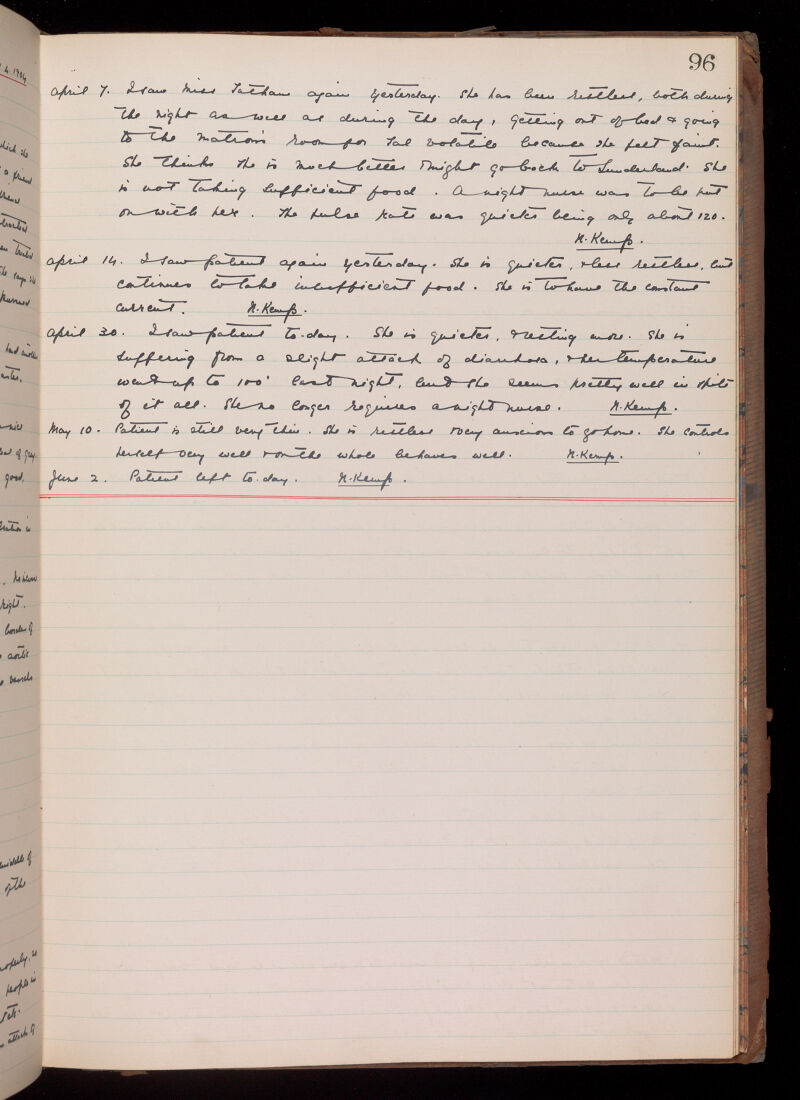 96
April 7. I saw Miss Tatham again yesterday. She has been restless, both during
the night as well as during the day, getting out of bed & going
to the Matron's room for Sal Volatile because she felt faint.
She thinks she is much better & might go back to Sunderland. She
is not taking sufficient food. A night nurse was to be put
on with her. The pulse rate was quieter being only about 120.
N. Kemp.
April 14. I saw patient again yesterday. She is quieter, & less restless, but
continues to take insufficient food. She is to have the constant
current. N. Kemp.
April 30. I saw patient to-day. She is quieter, & resting more. She is
suffering from a slight attack of diarrhoea, & her temperature
went up to 100° last night, but she seems pretty well in spite
of it all. She no longer requires a night nurse. N. Kemp.
May 10. Patient is still very thin. She is restless & very anxious to go home. She controls
herself very well & on the whole behaves well. N. Kemp.
June 2. Patient left to-day. N. Kemp.
4. 1904
which she
a friend
had another
good.
night.
border of
aortic
vessels
of the
people in
attack of